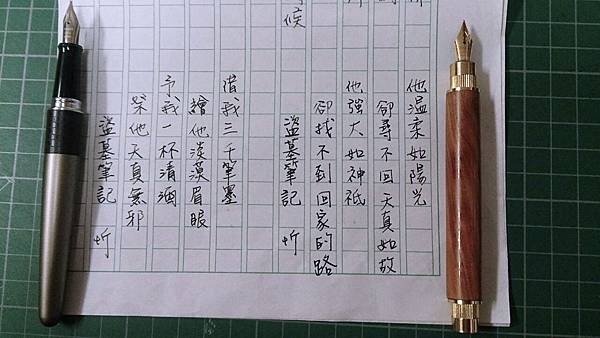 候
他溫柔如陽光
卻尋不回天真如故
他強大如神祇
卻找不到回家的路
盜墓筆記 忻
借我三千筆墨
繪他淡漠眉眼
予我一杯清酒
祭他天真無邪
盜墓筆記 忻